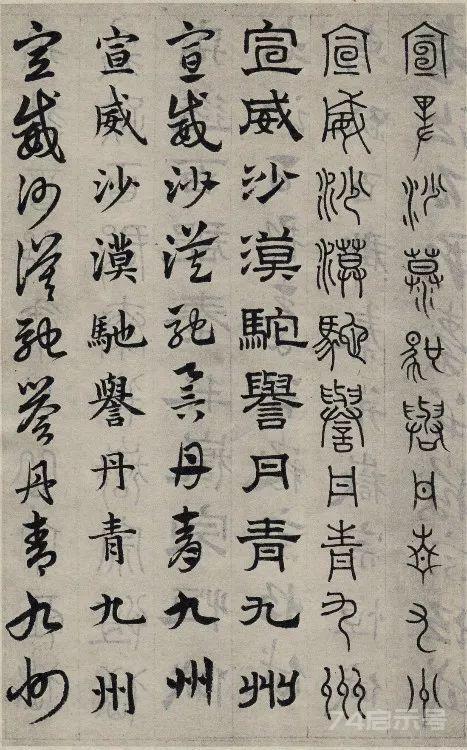 宣威沙漠馳譽丹青九州
宣威沙漠馳譽丹青九州
宣威沙漠馳譽丹青九州
宣威沙漠馳譽丹青九州
宣威沙漠馳譽丹青九州
宣威沙漠馳譽丹青九州
74启示号